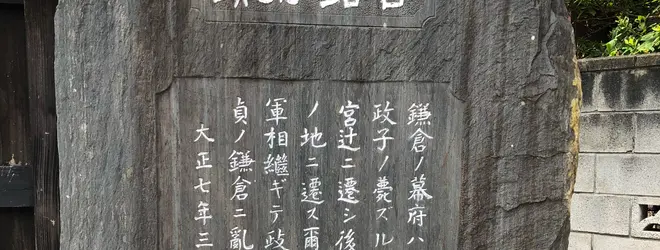 鎌倉ノ幕府ハ
政子ノ薨ズル
宮辻ニ遷シ後
ノ地ニ遷ス爾
軍相継ギテ政
貞ノ鎌倉ニ亂
大正七年三